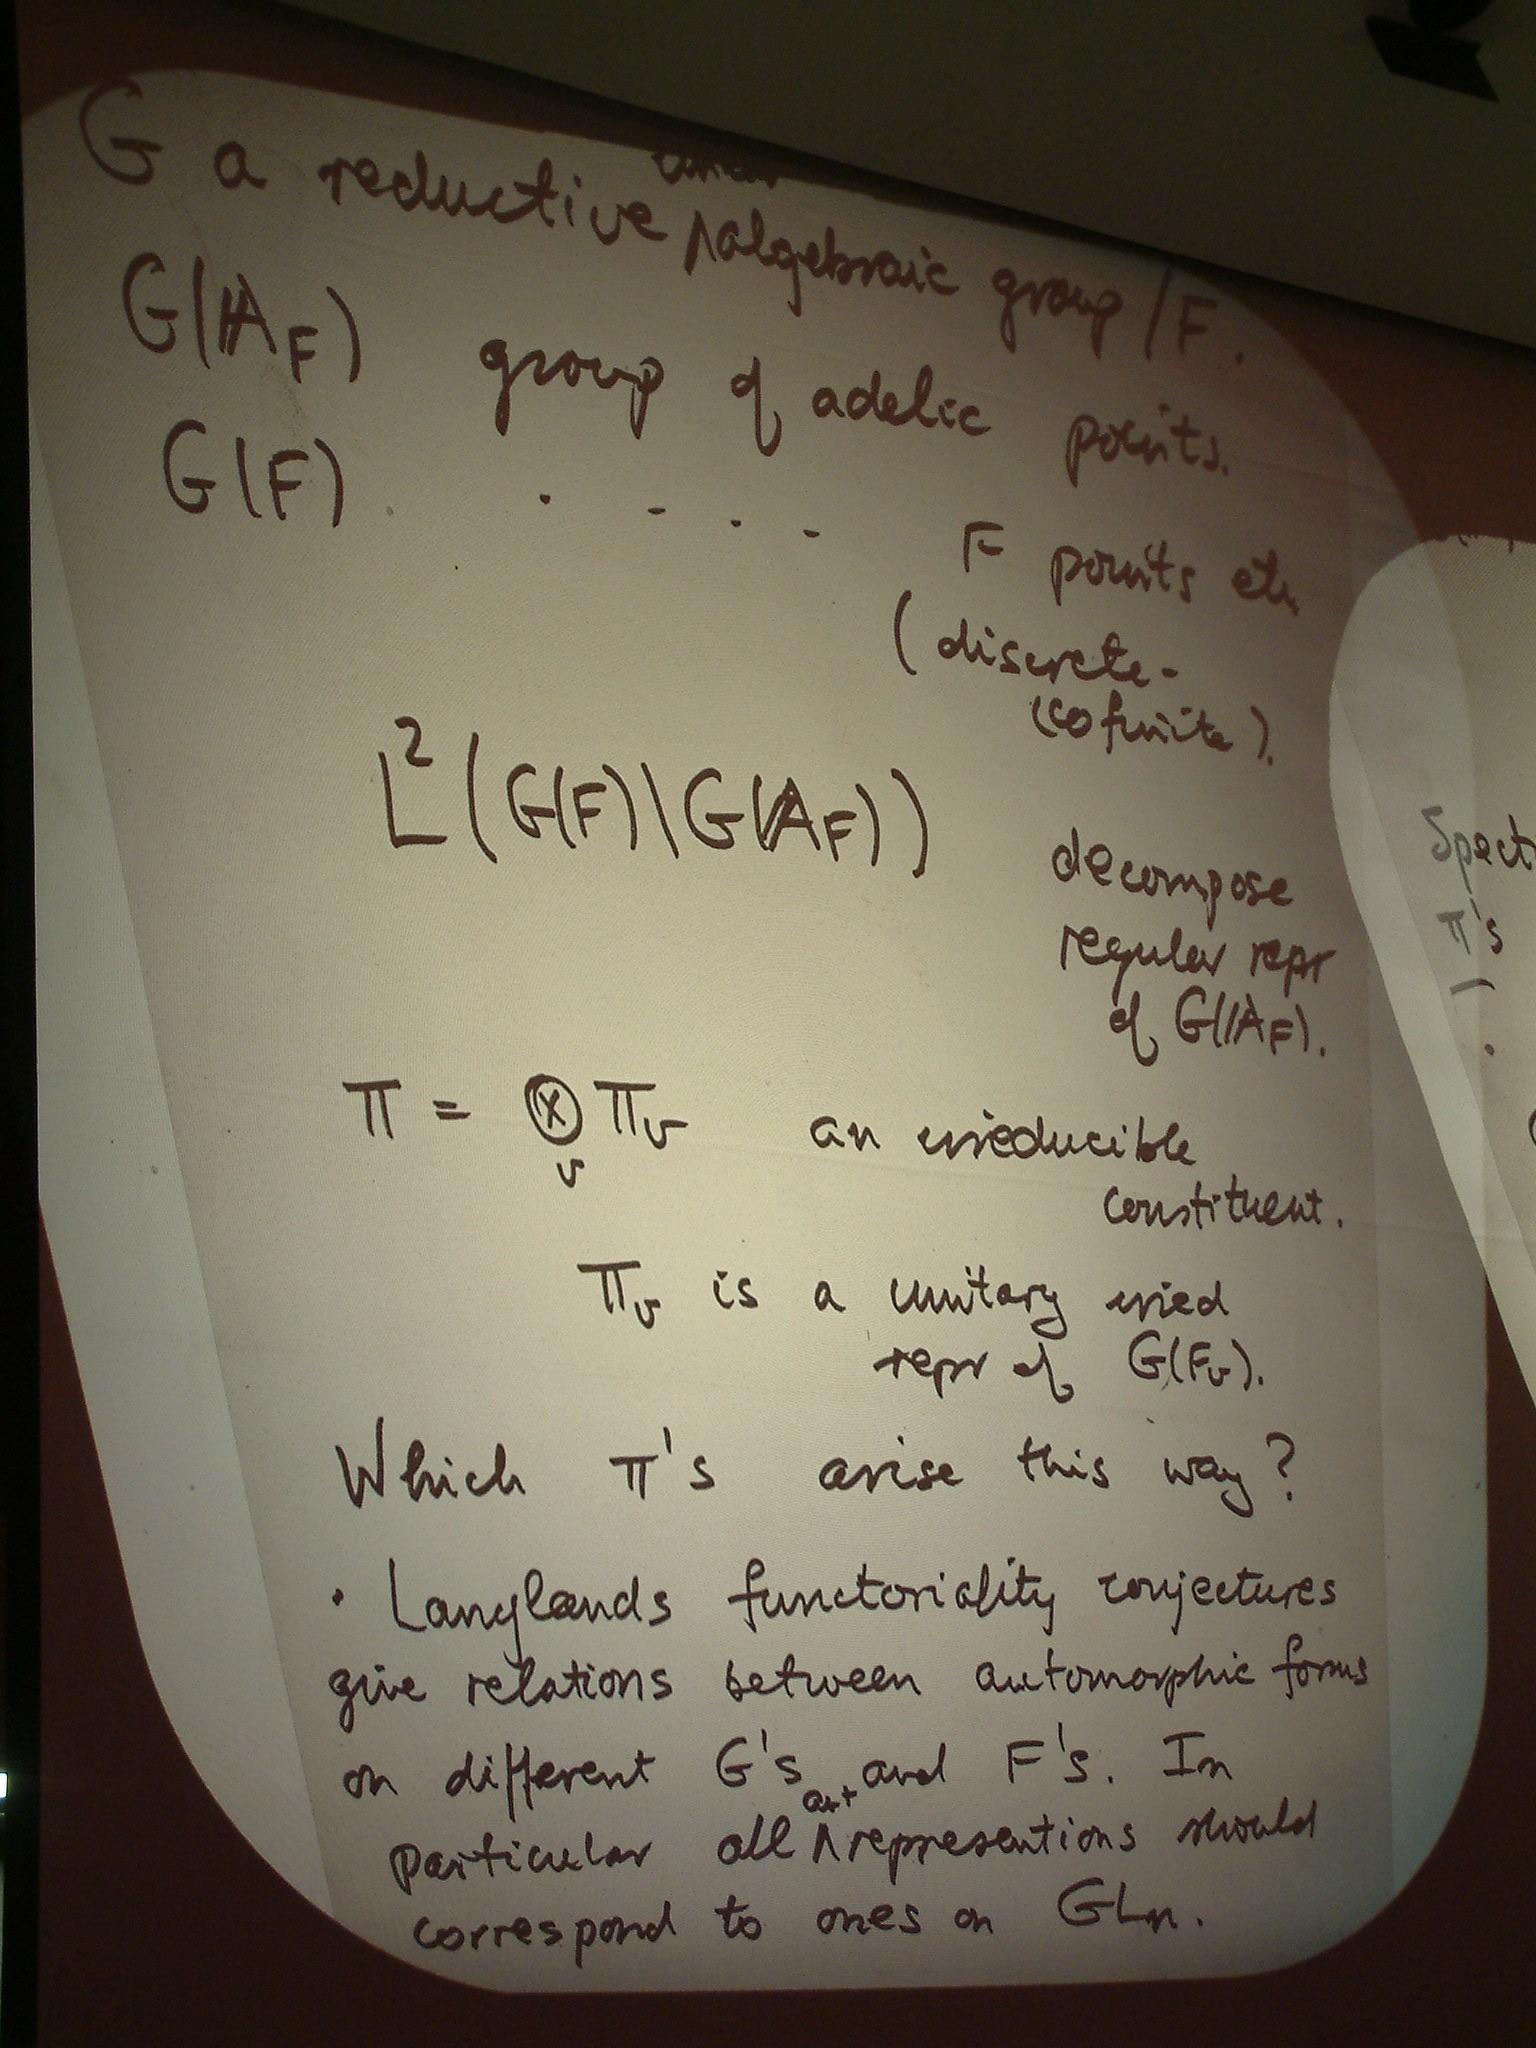 linear
G a reductive ∧ algebraic group / F.
G(𝔸_F) group of adelic points.
G(F) . - . - F points etc
(discrete-
(cofinite).
L²(G(F)\G(𝔸_F))
decompose
regular repr
of G(𝔸_F).
π = ⊗_v π_v an irreducible
constituent.
π_v is a unitary irred
repr of G(F_v).
Which π's arise this way?
· Langlands functoriality conjectures
give relations between automorphic forms
on different G's and F's. In
aut
particular all ∧ representions should
correspond to ones on GL_n.
π's